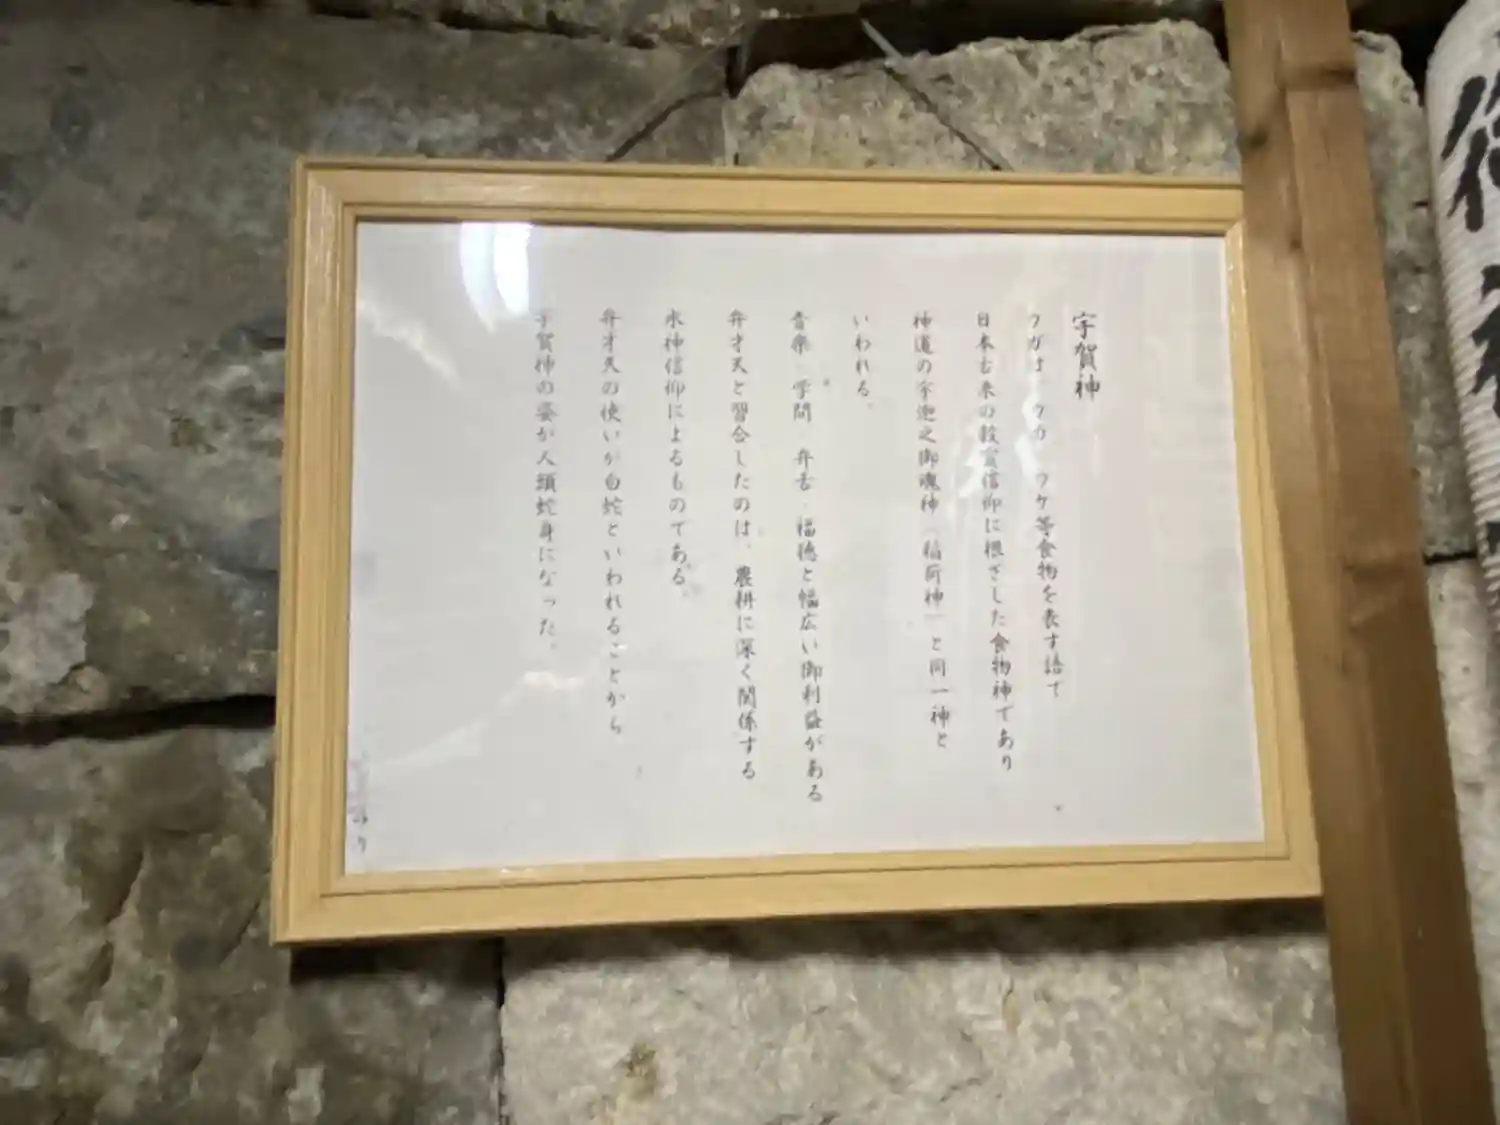 宇賀神
ウガは ウカ ウケ等食物を表す語で
日本古来の穀霊信仰に根ざした食物神であり
神道の宇迦之御魂神(稲荷神)と同一神と
いわれる。
音楽・学問・弁舌・福徳と幅広い御利益がある
弁才天と習合したのは、農耕に深く関係する
水神信仰によるものである。
弁才天の使いが白蛇といわれることから
宇賀神の姿が人頭蛇身になった。